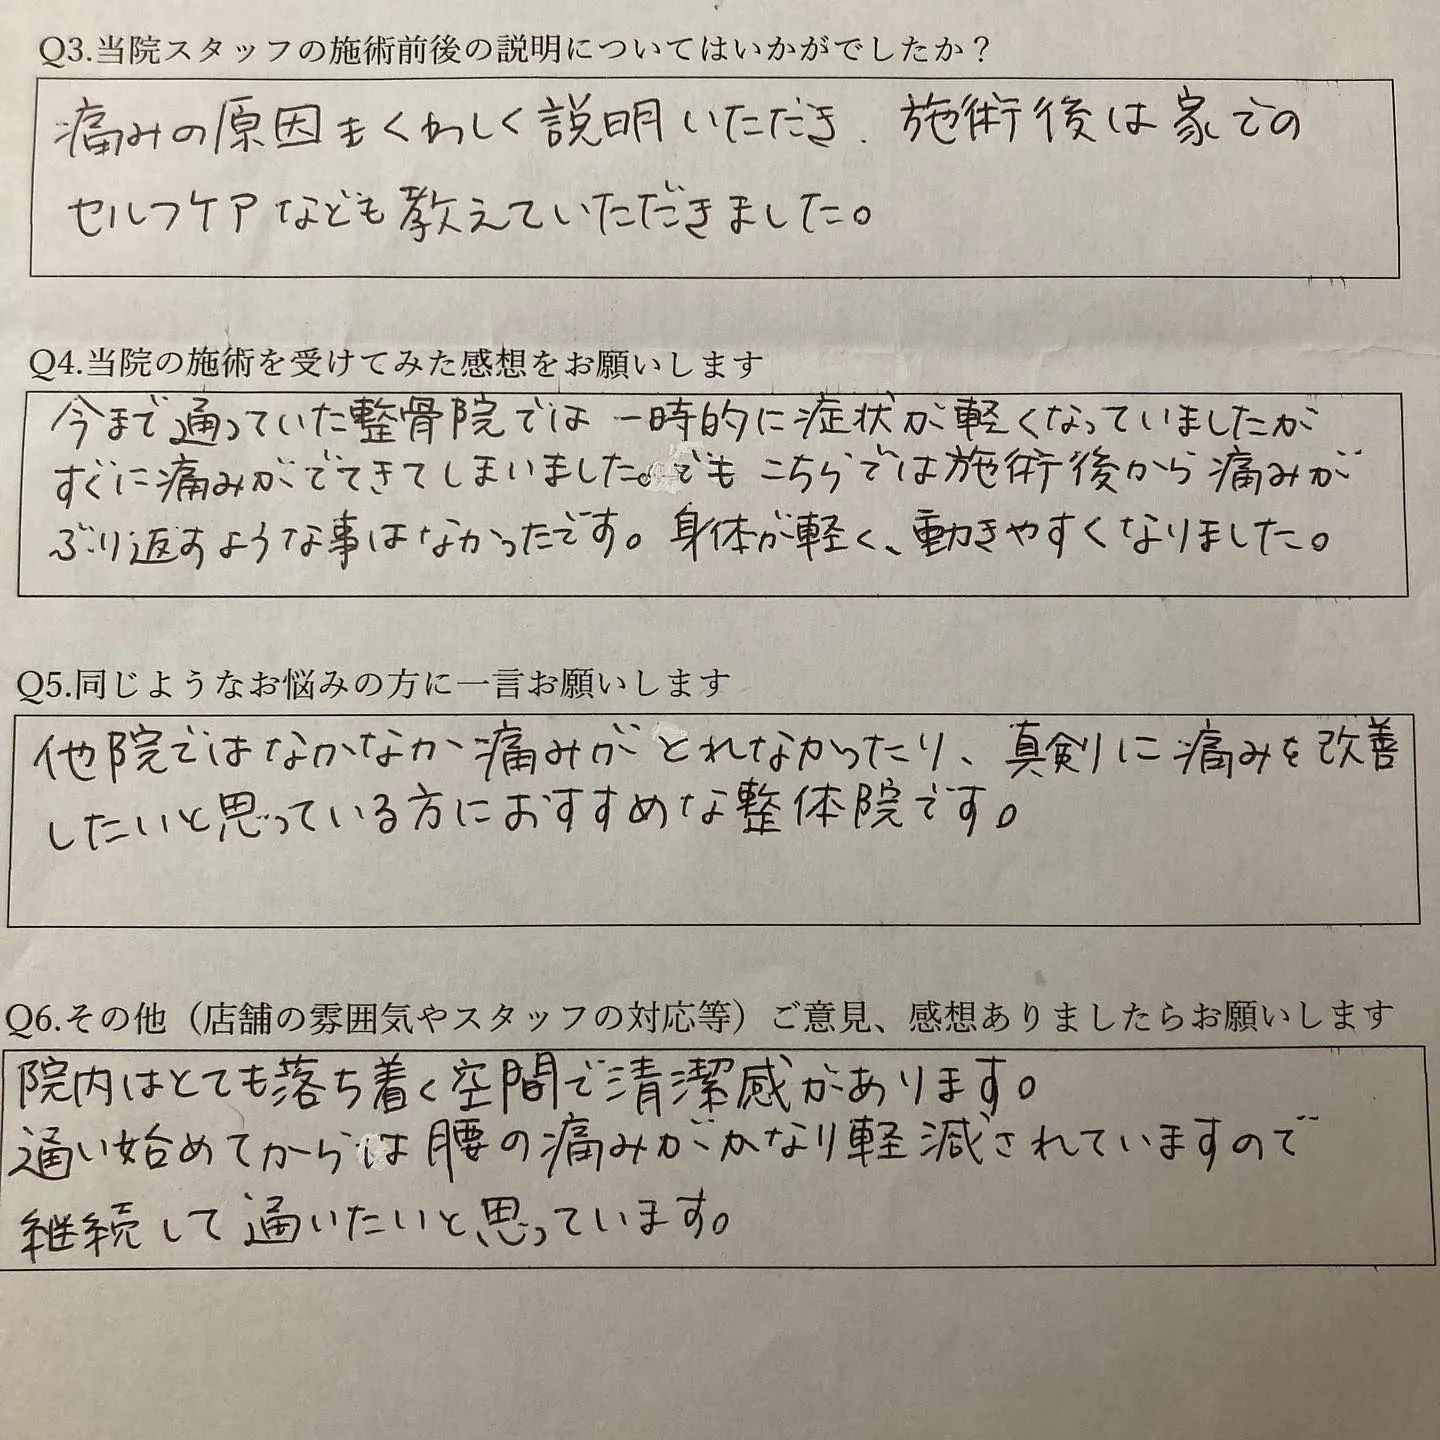 Q3.当院スタッフの施術前後の説明についてはいかがでしたか？
痛みの原因もくわしく説明いただき、施術後は家での
セルフケアなども教えていただきました。
Q4.当院の施術を受けてみた感想をお願いします
今まで通っていた整骨院では一時的に症状が軽くなっていましたが
すぐに痛みがでてきてしまいました。でもこちらでは施術後から痛みが
ぶり返すような事はなかったです。身体が軽く、動きやすくなりました。
Q5.同じようなお悩みの方に一言お願いします
他院ではなかなか痛みがとれなかったり、真剣に痛みを改善
したいと思っている方におすすめな整体院です。
Q6.その他（店舗の雰囲気やスタッフの対応等）ご意見、感想ありましたらお願いします
院内はとても落ち着く空間で清潔感があります。
通い始めてからは腰の痛みがかなり軽減されていますので
継続して通いたいと思っています。